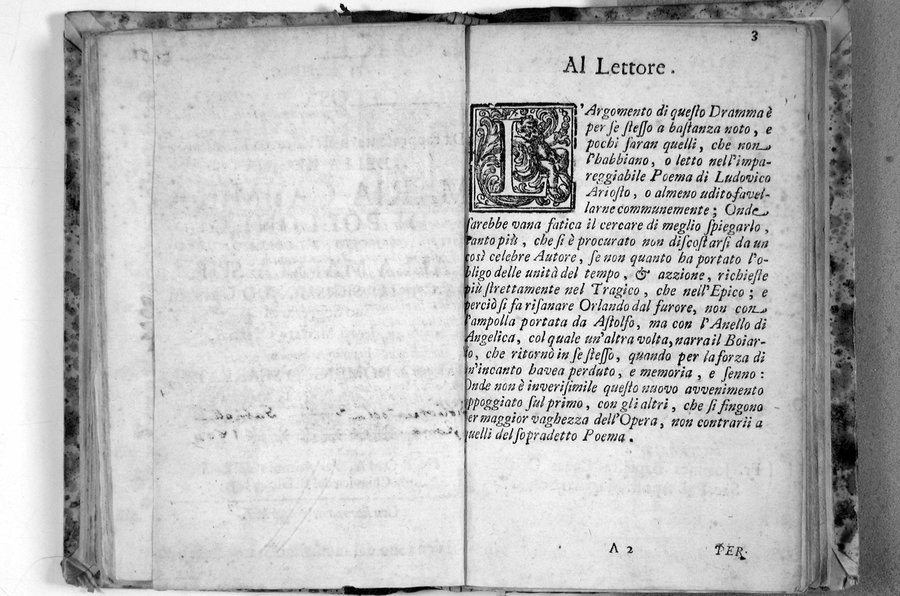 3
Al Lettore.
L'Argomento di questo Dramma è
per se stesso a bastanza noto, e
pochi saran quelli, che non
l'habbiano, o letto nell'impa-
reggiabile Poema di Ludovico
Ariosto, o almeno udito favel-
larne communemente; Onde
sarebbe vana fatica il cercare di meglio spiegarlo,
tanto più, che si è procurato non discostarsi da un
così celebre Autore, se non quanto ha portato l'o-
bligo delle unità del tempo, & azzione, richieste
più strettamente nel Tragico, che nell'Epico; e
perciò si fa risanare Orlando dal furore, non con
l'ampolla portata da Astolfo, ma con l'Anello di
Angelica, col quale un'altra volta, narra il Boiar-
do, che ritornò in se stesso, quando per la forza di
un'incanto havea perduto, e memoria, e senno:
Onde non è inverisimile questo nuovo avvenimento
appoggiato sul primo, con gli altri, che si fingono
per maggior vaghezza dell'Opera, non contrarii a
quelli del sopradetto Poema.
A 2
TER-